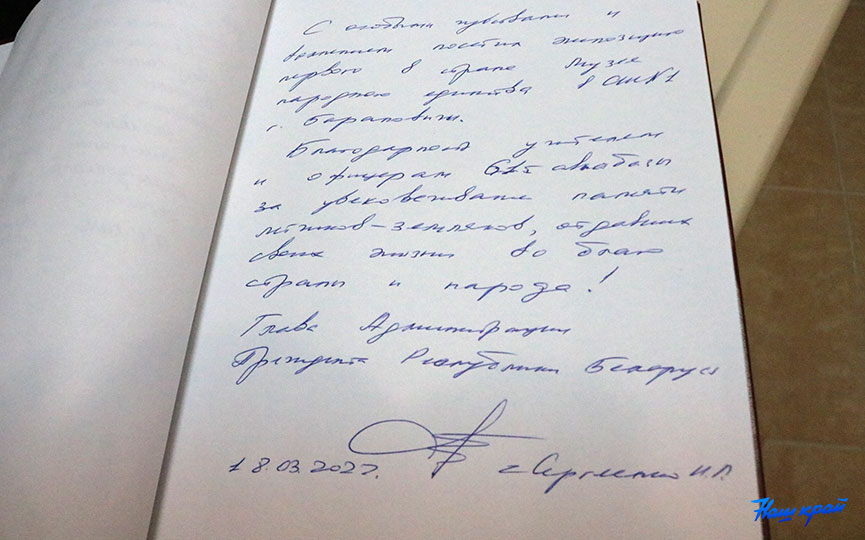 С особыми чувствами и
волнением посетил экспозицию
первого в стране Музея
народного единства в СШ №1
г. Барановичи.
Благодарность учителям
и офицерам 61й авиабазы
за увековечивание памяти
лётчиков-земляков, отдавших
свои жизни во благо
страны и народа!
Глава Администрации
Президента Республики Беларусь
18.03.2022. Сергеенко И.П.
Наш край